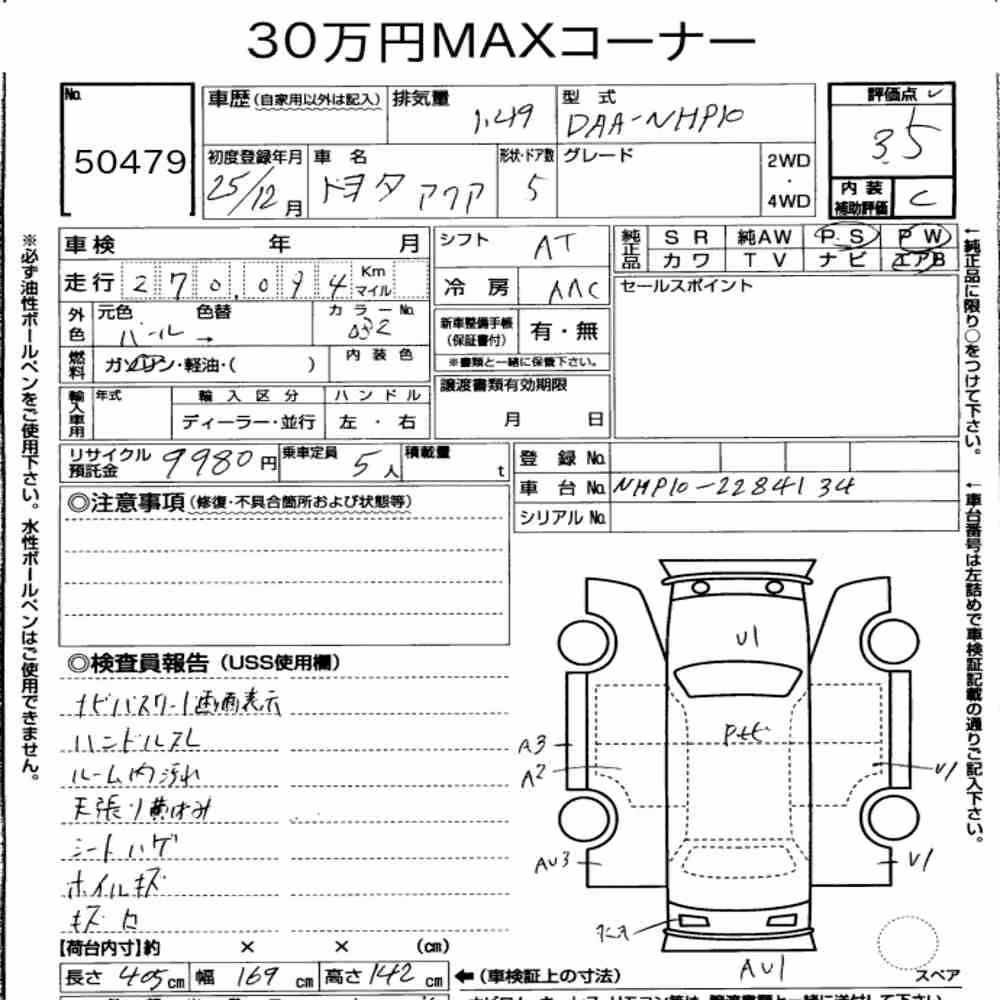 30万円MAXコーナー
No. 50479
車歴(自家用以外は記入) 排気量 1.49 型 式 DAA-NHP10
評価点 3.5
初度登録年月 25/12月 車 名 トヨタ アクア 形状・ドア数 5 グレード 2WD・4WD
内装補助評価 C
車検 年 月 シフト AT 純正品 SR 純AW PS PW
カワ TV ナビ エアB
走行 270.094 Km マイル 冷房 AAC セールスポイント
外色 元色 パール 色替 → カラーNo. 082 新車整備手帳(保証書付) 有・無
※書類と一緒に保管下さい。
燃料 ガソリン・軽油・( ) 内装色
譲渡書類有効期限 月 日
輸入車用 年式 輸入区分 ディーラー・並行 ハンドル 左・右
リサイクル預託金 9980円 乗車定員 5人 積載量 t
登録No.
車台No. NHP10-2284134
シリアルNo.
◎注意事項(修復・不具合箇所および状態等)
◎検査員報告(USS使用欄)
ナビパスワード画面表示
ハンドルスレ
ルーム内汚れ
天張り黄ばみ
シートハゲ
ホイルキズ
キズ凹
U1
A3
A2
U1
AU3
U1
AU1
スペア
【荷台内寸】約 × × (cm)
長さ 405cm 幅 169cm 高さ 142cm ←(車検証上の寸法)
※必ず油性ボールペンをご使用下さい。水性ボールペンはご使用できません。
←純正品に限り○をつけて下さい。
←車台番号は左詰めで車検証記載の通りご記入下さい。